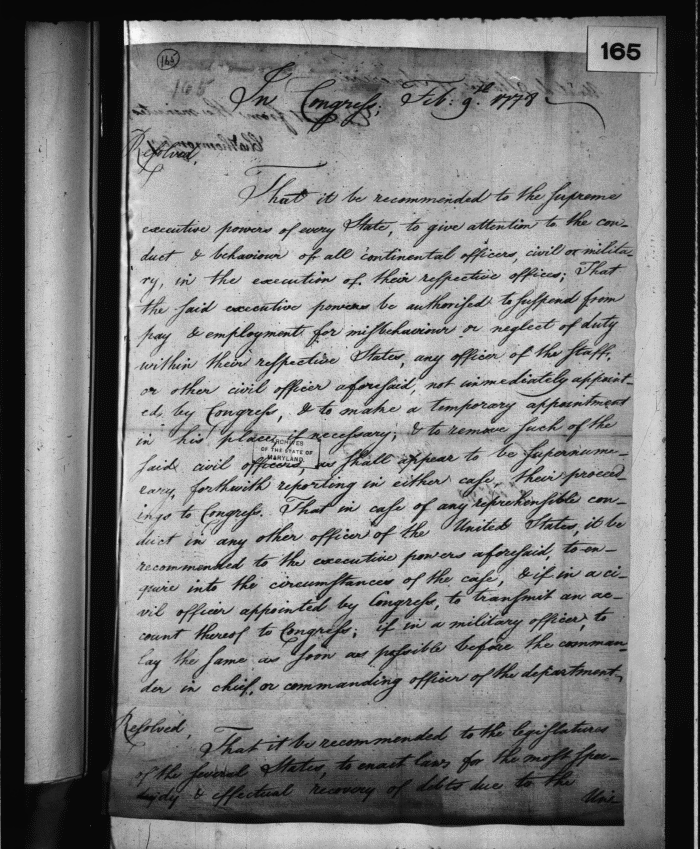 165
165
165
In Congress, Feb: 9th 1778
Resolved,
That it be recommended to the supreme
executive powers of every State, to give attention to the con-
duct & behaviour of all continental officers, civil or milita-
ry, in the execution of their respective offices; That
the said executive powers be authorised to suspend from
pay & employment for misbehaviour or neglect of duty
within their respective States, any officer of the staff,
or other civil officer aforesaid, not immediately appoint-
ed by Congress, & to make a temporary appointment
in his place, if necessary; & to remove such of the
ARCHIVES
OF THE STATE OF
MARYLAND
said civil officers, as shall appear to be supernume-
rary, forthwith reporting in either case, their proceed-
ings to Congress. That in case of any reprehensible con-
duct in any other officer of the United States, it be
recommended to the executive powers aforesaid, to en-
quire into the circumstances of the case, & if in a ci-
vil officer appointed by Congress, to transmit an ac-
count thereof to Congress; if in a military officer, to
lay the same as soon as possible before the comman-
der in chief, or commanding officer of the department,
Resolved,
That it be recommended to the legislatures
of the several States, to enact laws for the most spee-
dy & effectual recovery of debts due to the
Uni-